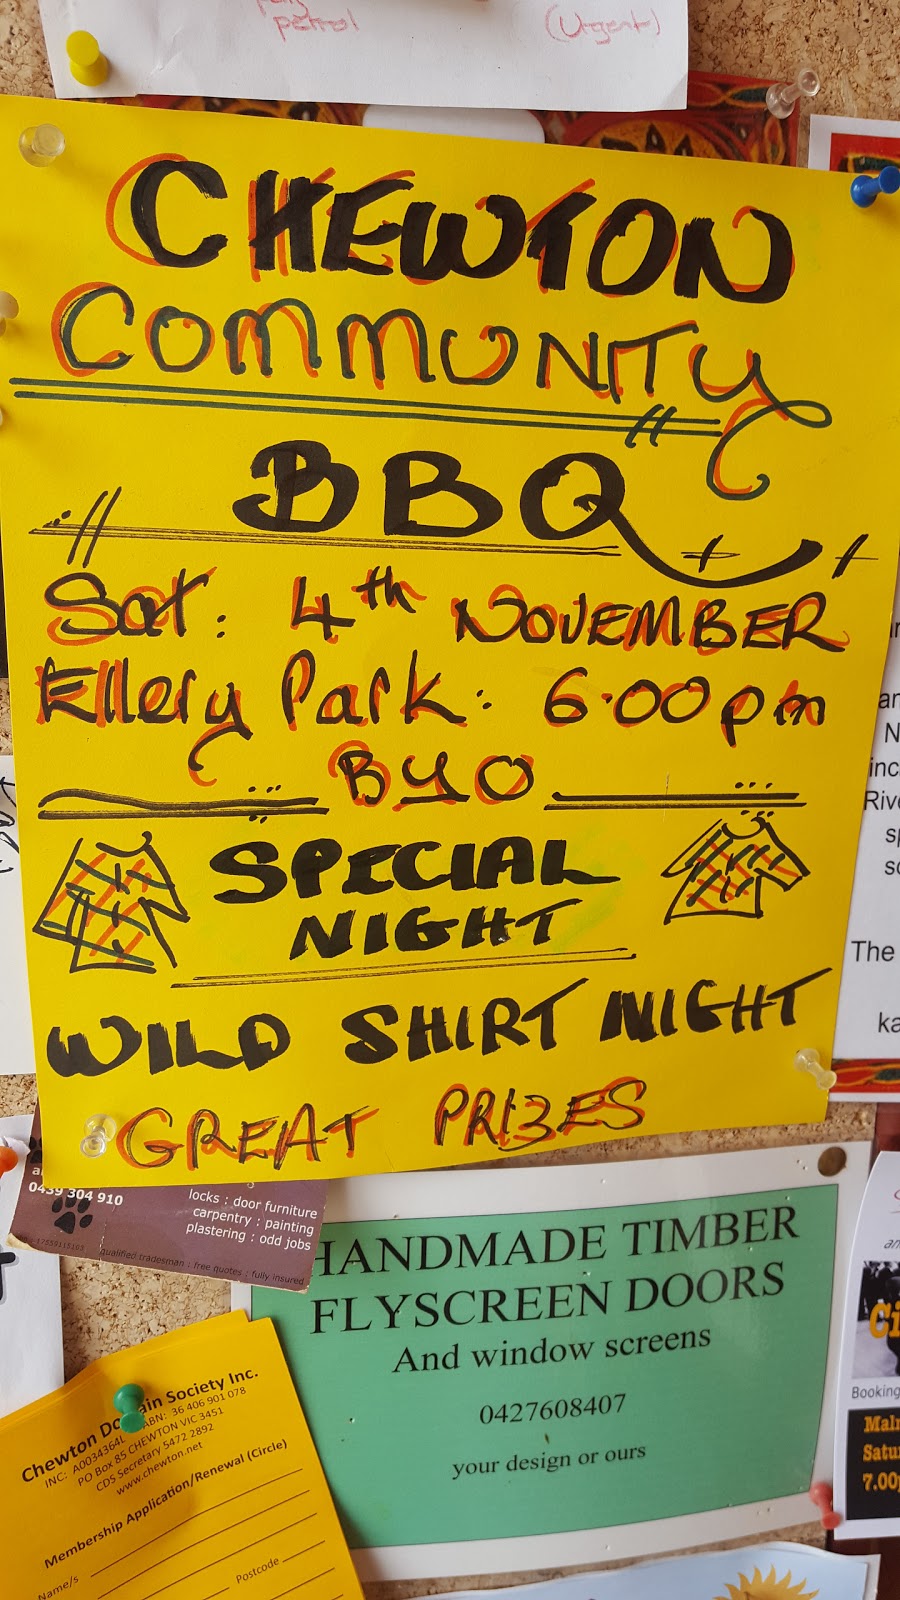 petrol
(Urgent)
CHEWTON
COMMUNITY
BBQ
Sat: 4th NOVEMBER
Ellery Park: 6.00pm
BYO
SPECIAL
NIGHT
WILD SHIRT NIGHT
GREAT PRIZES
0439 304 910
locks : door furniture
carpentry : painting
plastering : odd jobs
qualified tradesman : free quotes : fully insured
HANDMADE TIMBER
FLYSCREEN DOORS
And window screens
0427608407
your design or ours
Chewton Domain Society Inc.
INC: A0034364L ABN: 36 406 901 078
PO Box 85 CHEWTON VIC 3451
CDS Secretary 5472 2892
www.chewton.net
Membership Application/Renewal (Circle)
Name/s
Postcode
The
ka
Ci
Booking
Malm
Satu
7.00p